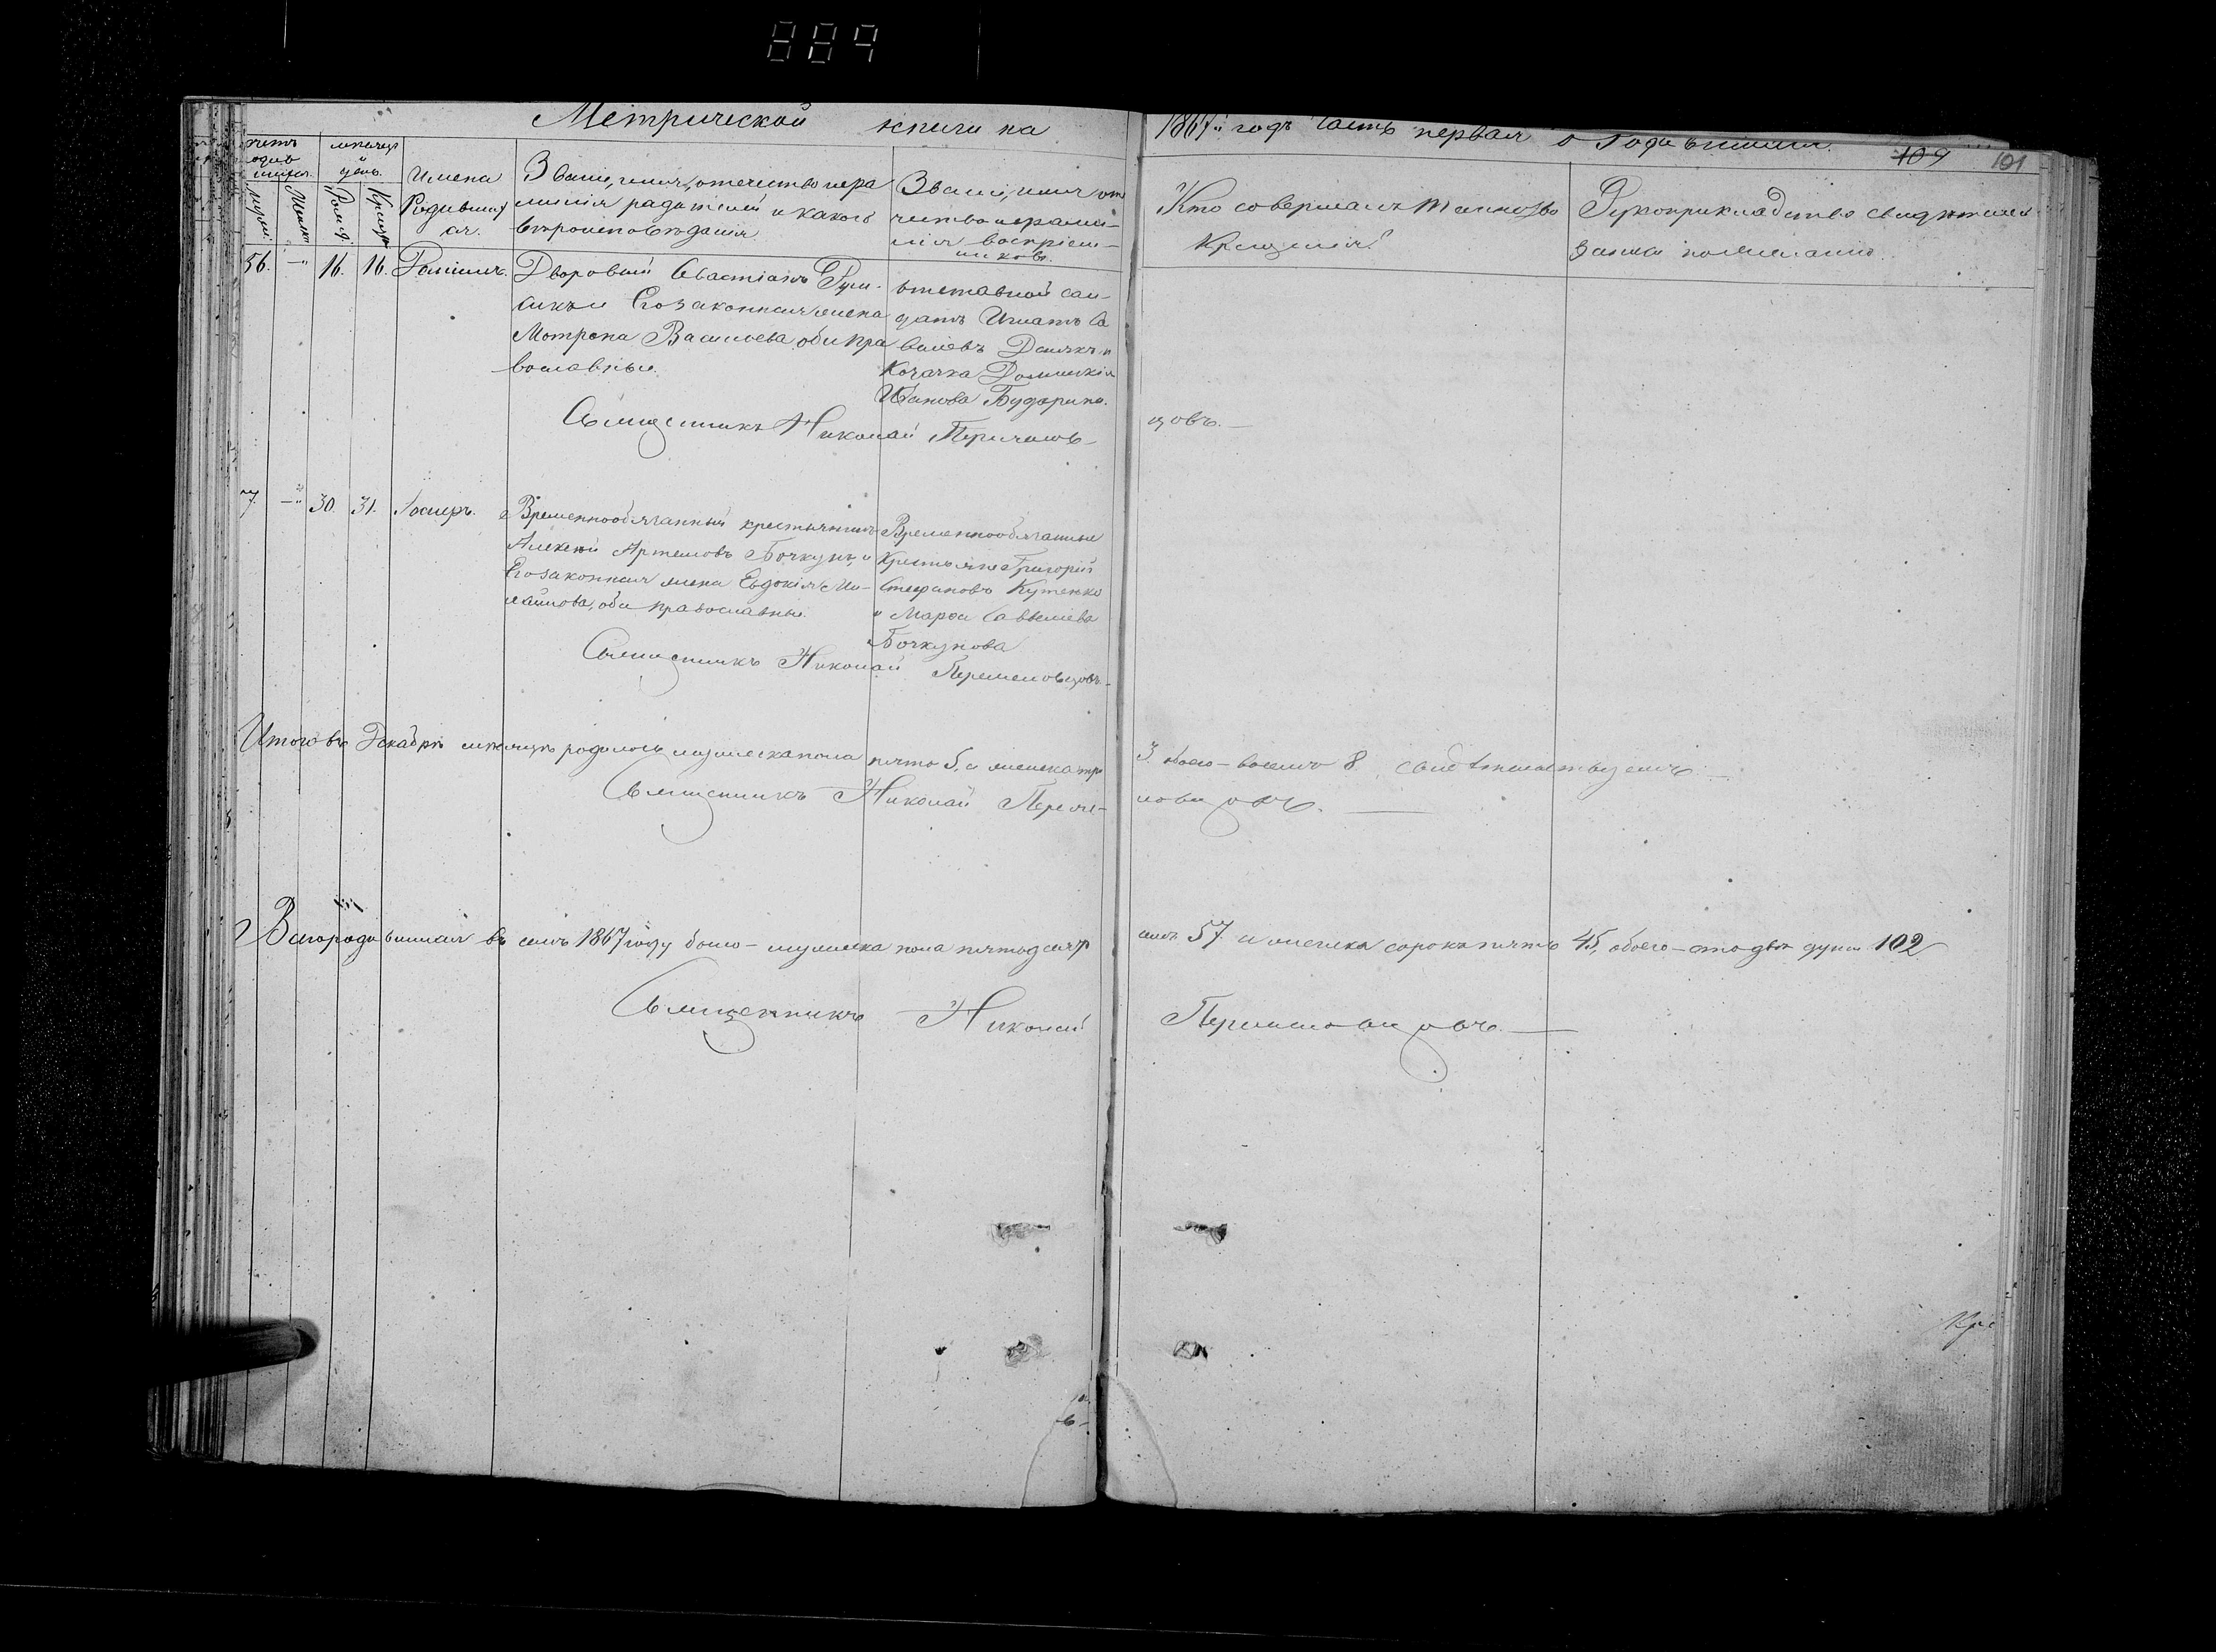 889
Метрической книги на 1867й годъ Часть первая о Родившихся.
109 101
мѣсяцъ
и
день.
Имена
Родивших
ся.
Званіе, имя, отечество и фа
милія родителей и какого
вѣроисповѣданія.
Званіе, имя от
чество и фами-
лія воспріем-
никовъ.
Кто совершалъ таинство
крещенія?
Рукоприкладство свидѣтелей
записи по желанію.
56. —" 16. 16.
Дворовый Савастіанъ
Его законная жена
Мотрона Васильева оби пра
вославные.
отставной сол-
датъ Игнатъ Са
и
Козачка
Иванова Бударина.
Священникъ Николай
цовъ.—
7. —" 30. 31. Іосифъ.
Временнообязанный крестьянинъ
Алексѣй Артемовъ Бочкунъ, и
Его законная жена Евдокія Ми-
хайлова, оби православные.
Временнообязанные
Крестьяне Григорій
Стефановъ Кутенко
и Марфа Савельева
Бочкунова
Священникъ Николай Перемеловцовъ.—
Итого въ Декабрѣ мѣсяцѣ родилось мужеска пола пять 5, а женска три
3. обоего — восемь 8. свидѣтельствуемъ.—
Священникъ Николай Переме-
ловцовъ.—
Всего родившихся въ семъ 1867 году было — мужеска пола пятьдесят
семь 57. и женска сорокъ пять 45, обоего — сто двѣ души 102
Священникъ Николай Перемеловцовъ.—